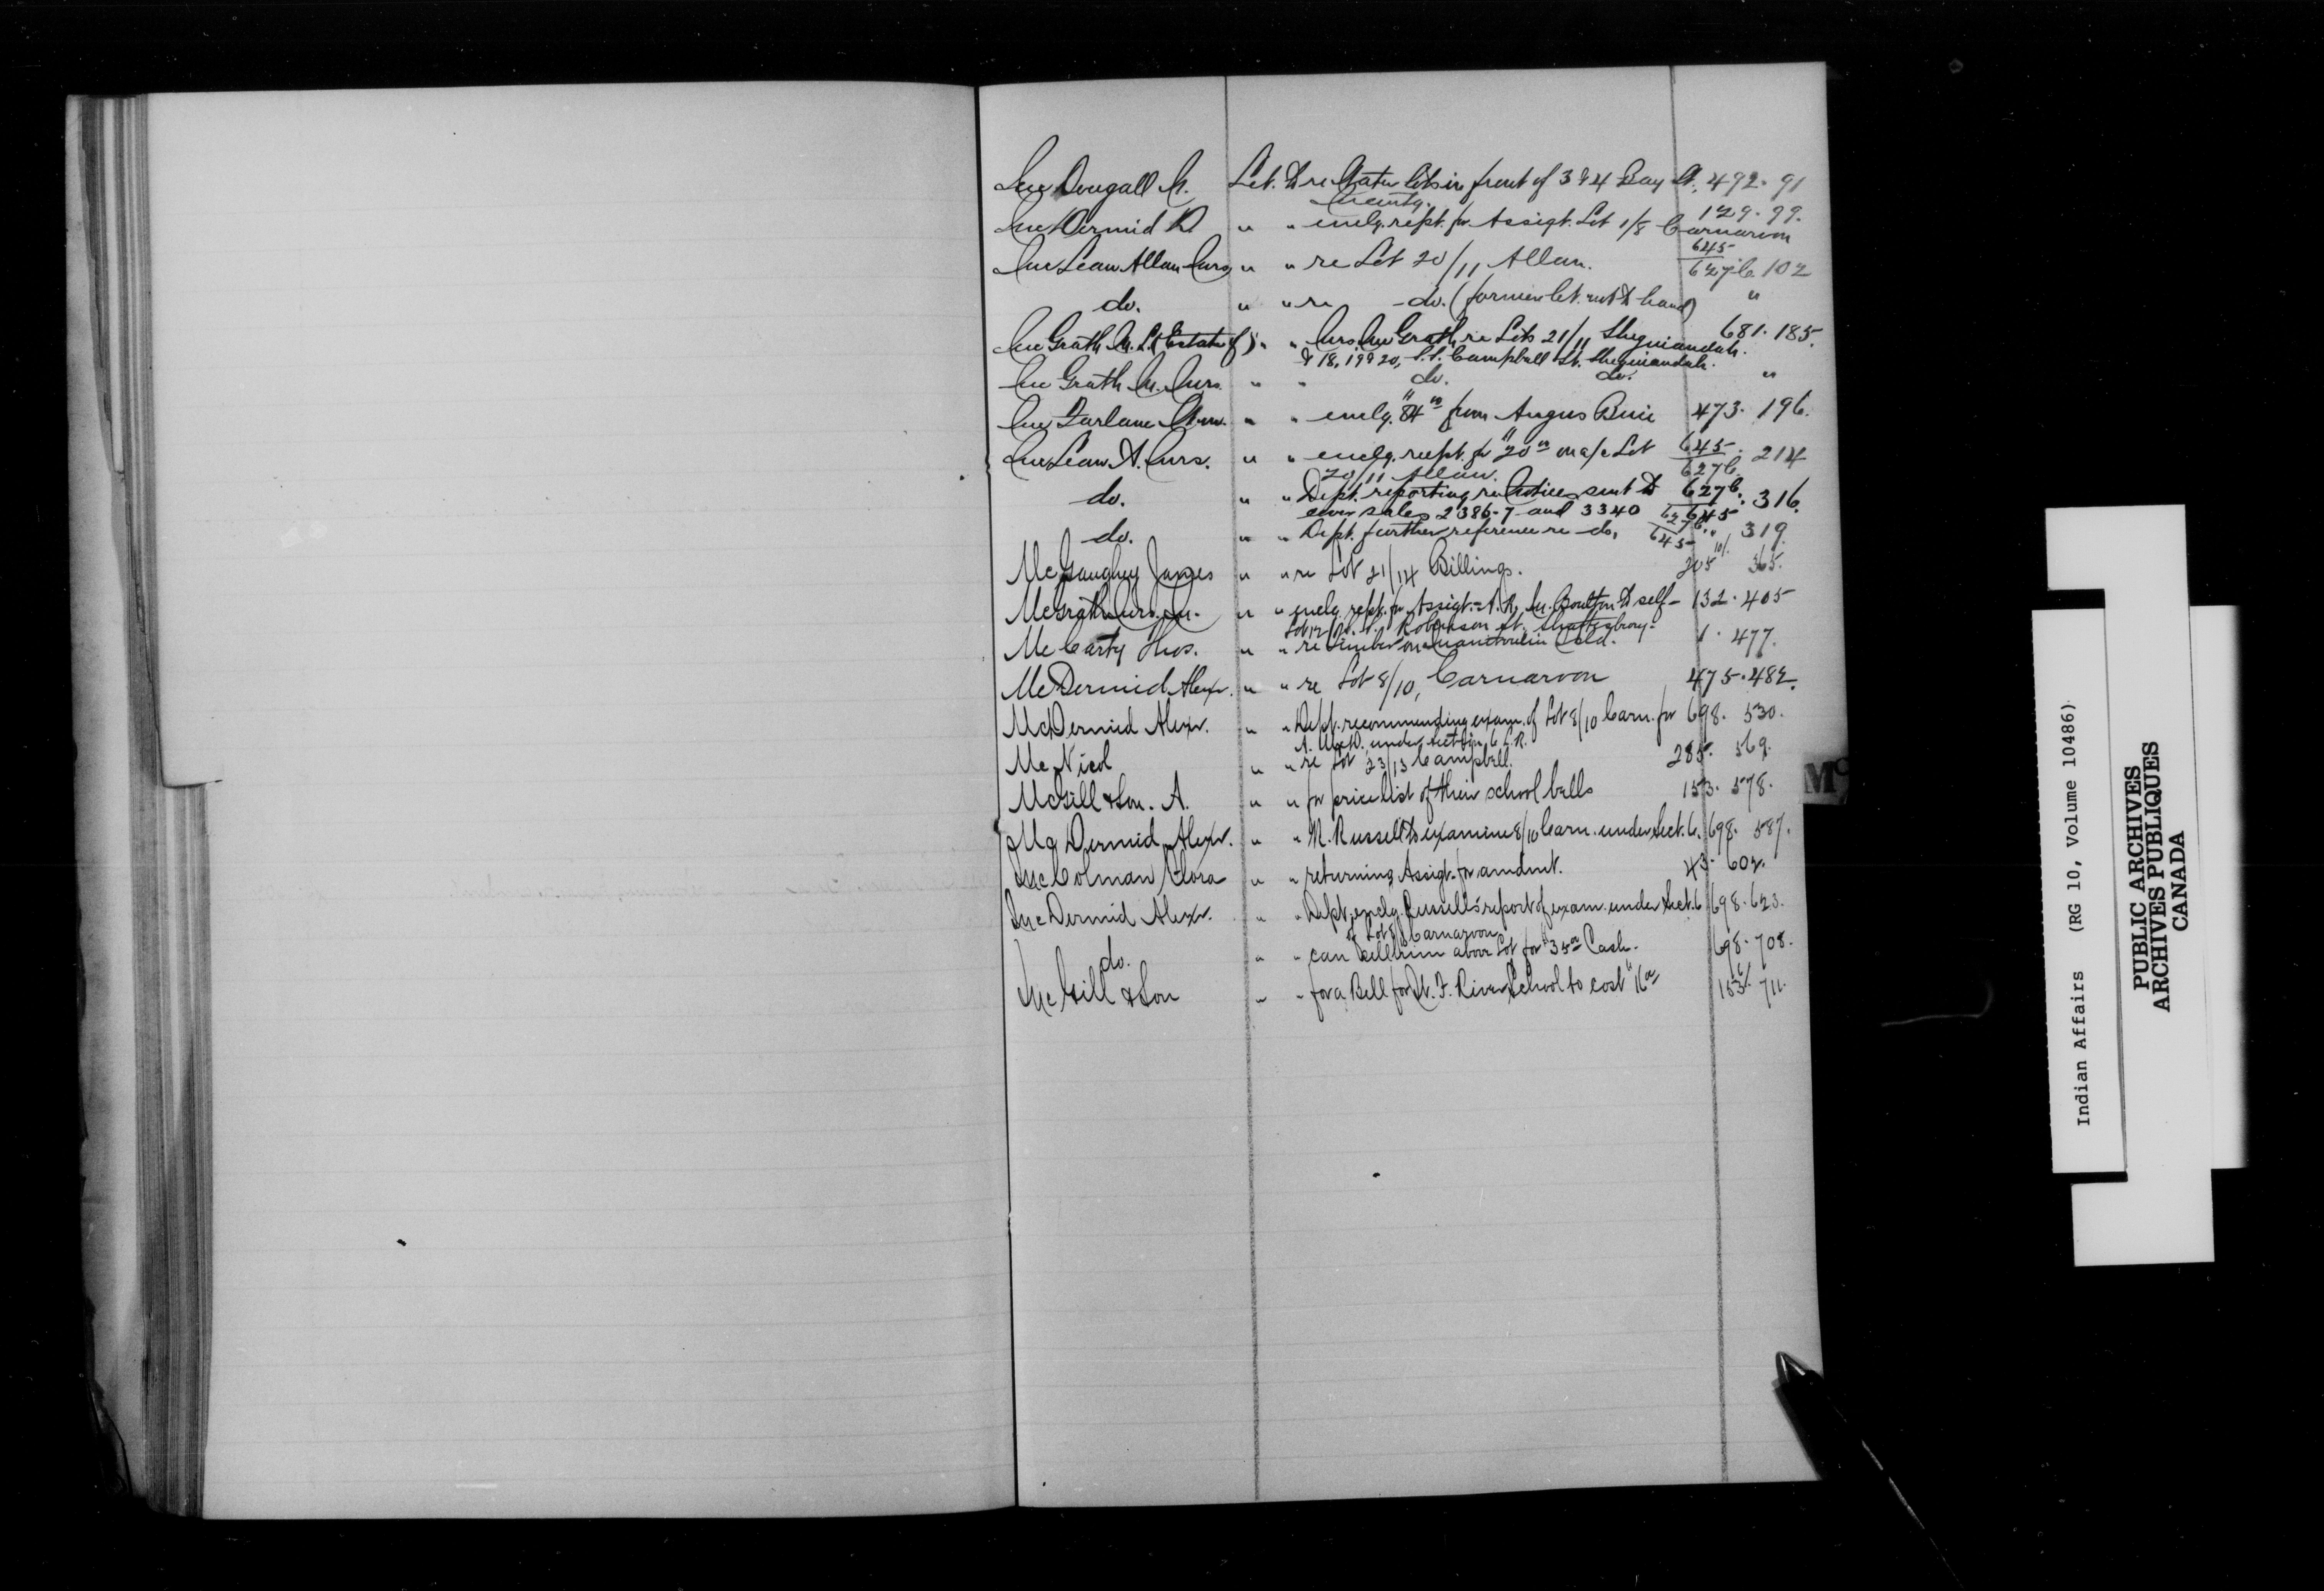 McDougall M. Let. to re Water lots in front of 3 & 4 Bay St. 492. 91
McDermid D " " enclg. rcpt. for Assigt. Lot 1/8 Carnarvon 129. 99.
McLean Allan Mrs " " re Lot 20/11 Allan. 645/627b. 102
do. " " re -do. (former let. not to hand) "
McGrath M. L. (Estate of) " " Mrs. McGrath re Lots 21/11 Sheguiandah. 681. 185.
& 18, 19 & 20, Campbell St. Sheguiandah.
McGrath M. Mrs. " " do. do. "
McFarlane " " enclg. from Angus Buie 473. 196.
McLean A. Mrs. " " enclg. rcpt. for $20 00 on a/c Lot 645/627b. 214
20/11 Allan.
do. " " Dept. reporting re Notices sent to 627b./645. 316.
cover sales 2386-7 and 3340
do. " " Dept. further reference re -do. 627b./645 " 319.
McGaughey James " " re Lot 21/14 Billings. 205 10/. 365.
McGrath Mrs. M. " " enclg rcpt. for Assigt. M. Boulton to self- 132. 405
Robinson St. Shaftesbury-
McCarty Thos. " " re Timber on Manitoulin Isld. 1. 477.
McDermid Alexr. " " re Lot 8/10, Carnarvon 475. 482.
McDermid Alexr. " " Dept. recommending exam. of Lot 8/10 Carn. for 698. 530.
A. McD. under Section 6 L.R.
McNicol " " re Lot 23/13 Campbell. 285. 569.
McGill & Son. A. " " for price list of their school bells 153. 578.
McDermid Alexr. " " M. Russell to examine 8/10 Carn. under Sect. 6. 698. 587.
McColman Flora " " returning Assigt. for amdmt. 43. 602.
McDermid Alexr. " " Dept. enclg. Russell's report of exam. under Sect. 6 698. 623.
of Lot 8/10 Carnarvon
do. " " can sell him above Lot for $35 00 Cash. 698. 708.
McGill & Son " " for a Bell for W. F. River School to cost $16 00 153. 711.
Mc
Indian Affairs (RG 10, Volume 10486)
PUBLIC ARCHIVES
ARCHIVES PUBLIQUES
CANADA